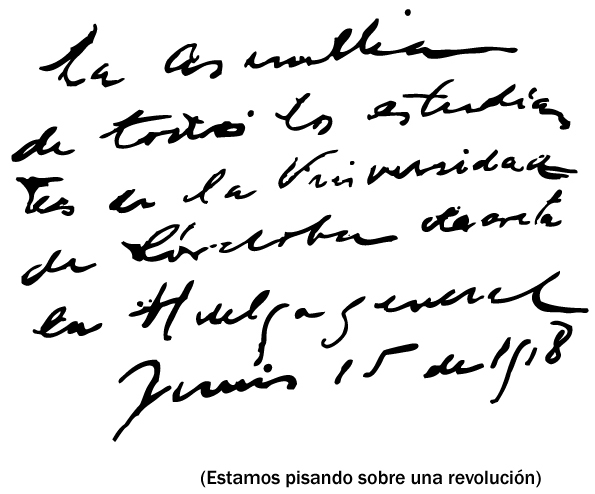 La asamblea
de todos los estudian
tes de la Universidad
de Córdoba decreta
la Huelga general
Junio 15 de 1918
(Estamos pisando sobre una revolución)